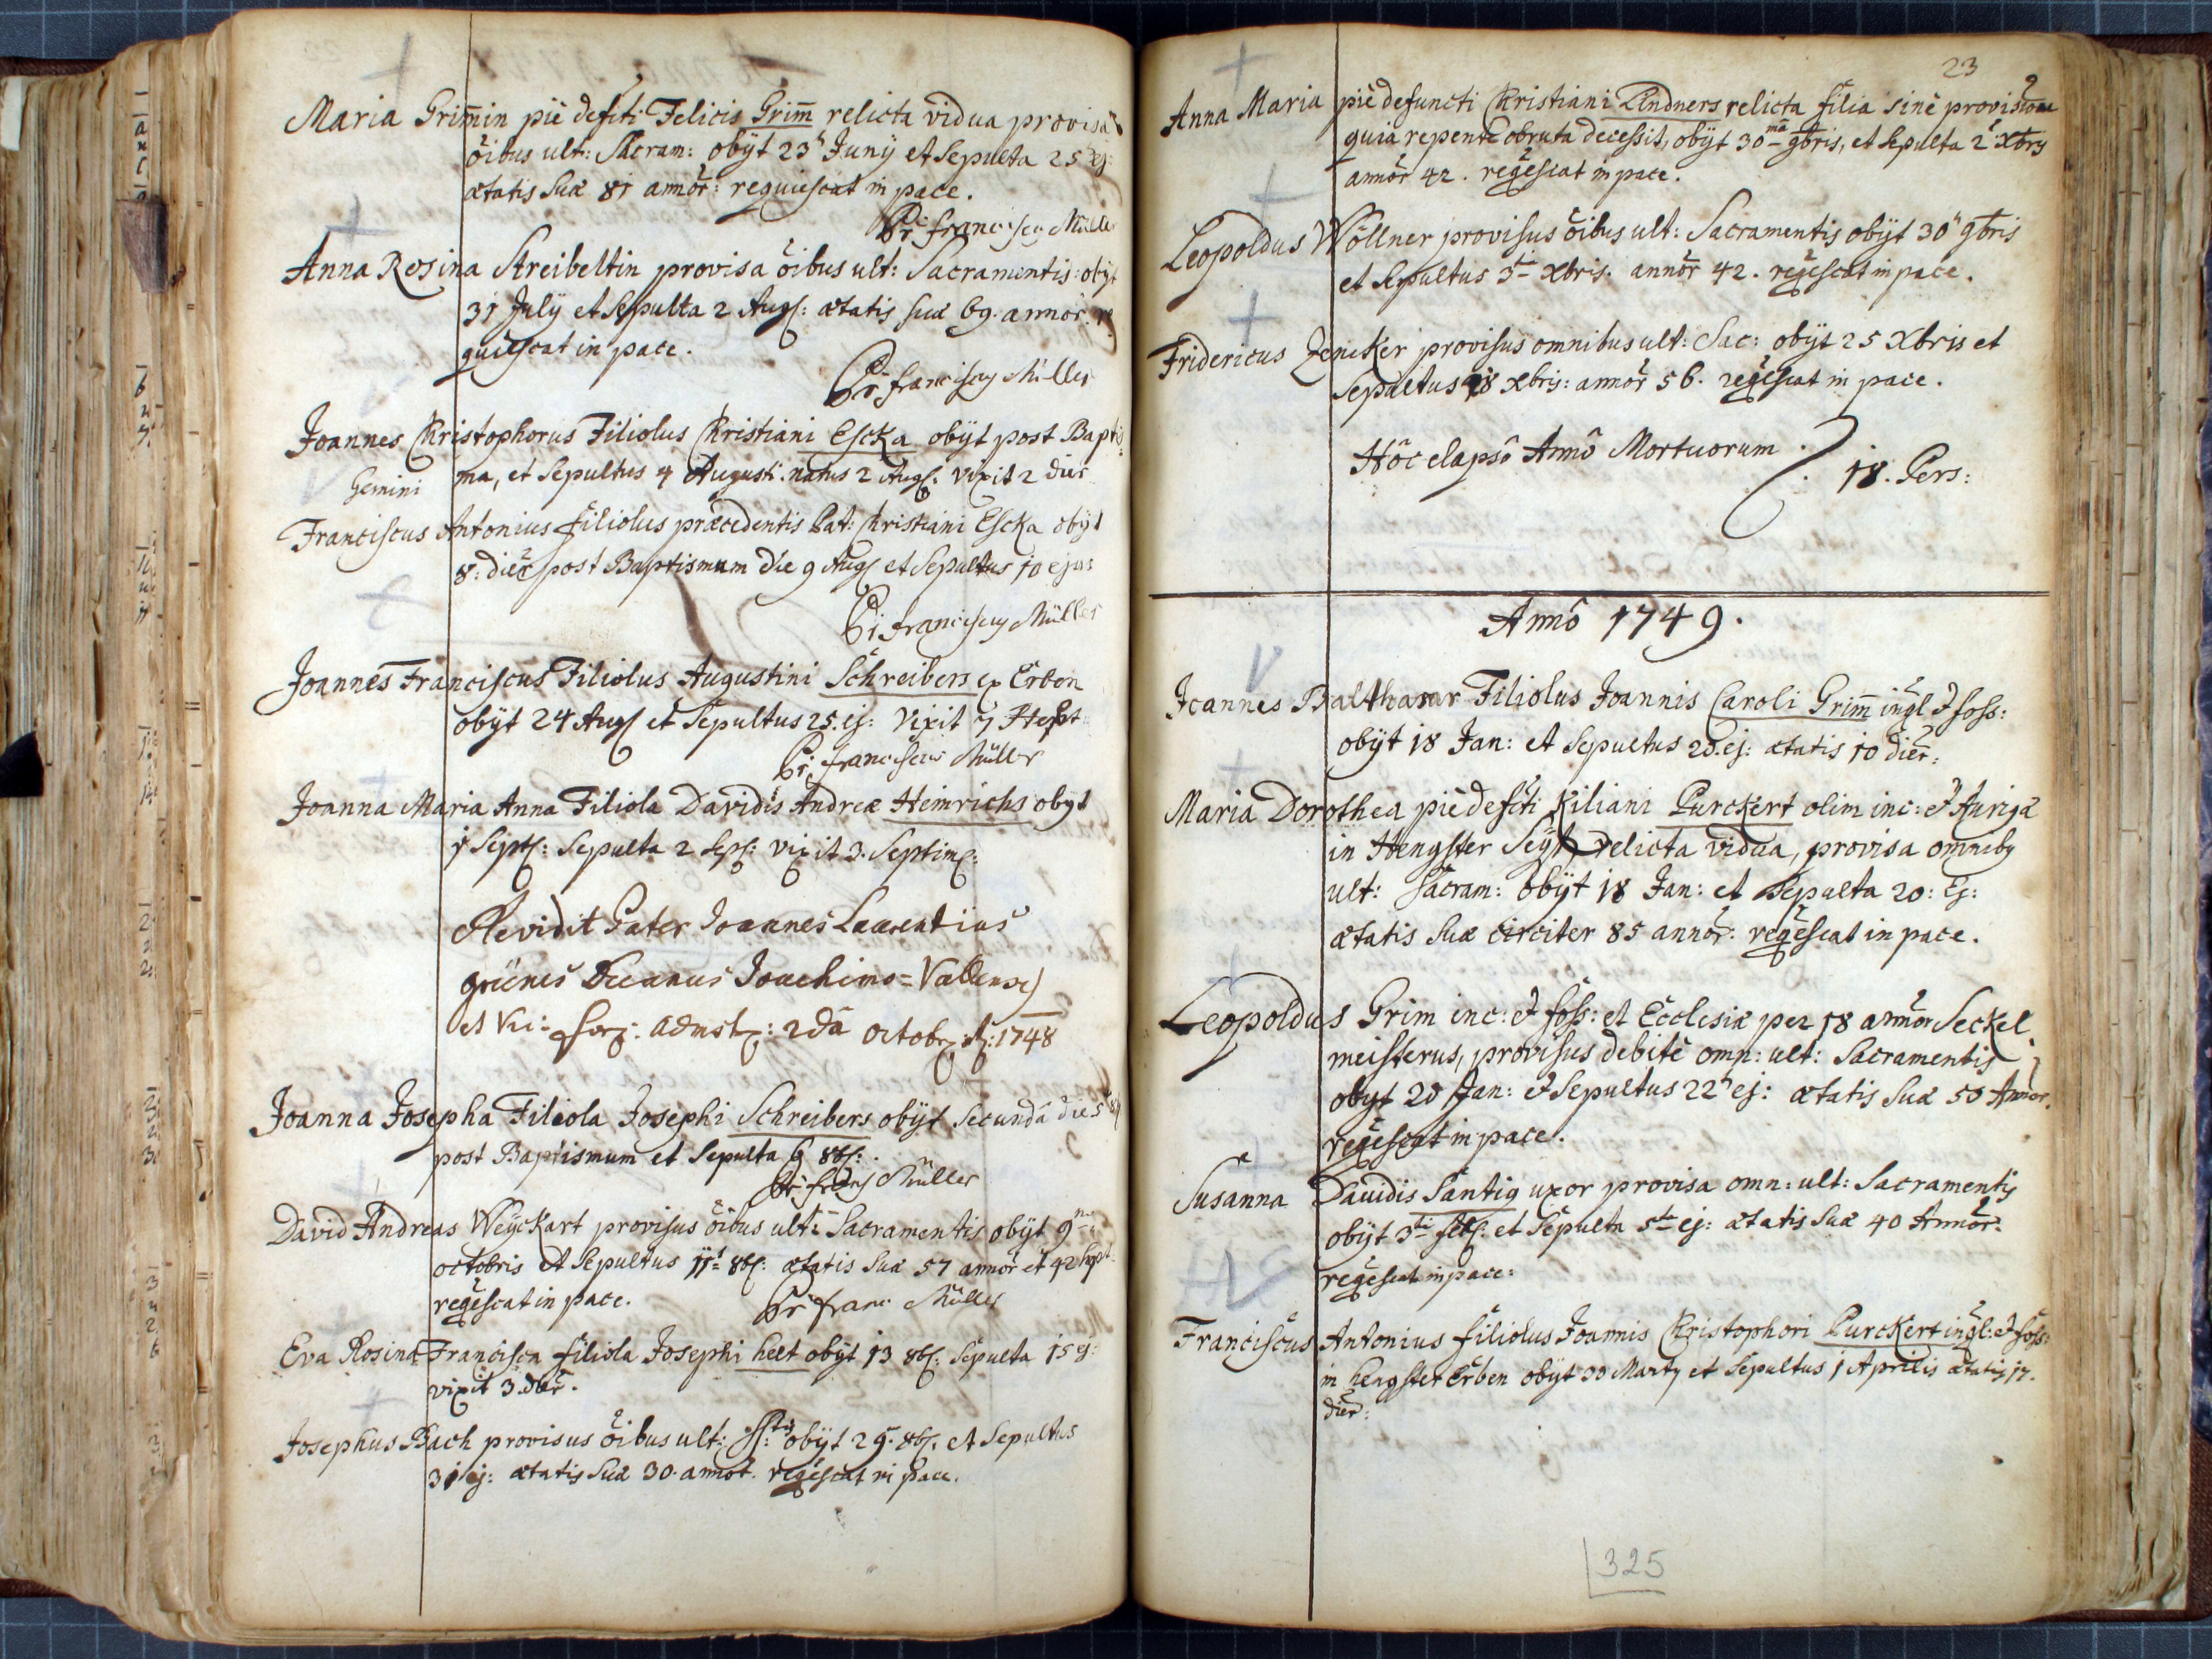 Maria Grim̅in piè defc̃ti Felicis Grim̅ relicta vidua provisa
õibus ult: Sacram: obijt 23 Junij et Sepulta 25 ej:
ætatis suæ 81 annor: requiescat in pace.
Pr: franciscus Müller
Anna Rosina Streibeltin provisa õibus ult: Sacramentis: obijt
31 Julij et Sepulta 2 Aug: ætatis suæ 69. annor. re
quiescat in pace.
Pr: franciscus Müller
Joannes Christophorus Filiolus Christiani Escka obijt post Baptis
ma, et Sepultus 4 Augusti. natus 2 Aug: vixit 2 dies
Gemini
Franciscus Antonius filiolus præcedentis Pat: Christiani Escka obijt
8: dier post Baptismum die 9 Aug et Sepultus 10 ejus
Pr: franciscus Müller
Joannes Franciscus Filiolus Augustini Schreibers ex Erben
obijt 24 Aug et Sepultus 25. ej: vixit 7 Sept:
Pr: franciscus Müller
Joanna Maria Anna Filiola Davidis Andreæ Heinrichs obijt
1 Sept: Sepulta 2 Sep: vixit 3. Septim:
Revidit Pater Joannes Laurentius
grünes Decanus Joachimo=Vallensis
et Vic: for: admst: 2dâ octobr: A: 1748
Joanna Josepha Filiola Josephi Schreibers obijt secundâ die 5
post Baptismum et Sepulta 9 8b:
Pr: fra͠nc Müller
David Andreas Weijckart provisus õibus ult: Sacramentis obijt 9
octobris et Sepultus 11 8b: ætatis suæ 57 annor et 42 Sept.
reqẽscat in pace. Pr franc Müller
Eva Rosina Francisca filiola Josephi helt obijt 13 8b: Sepulta 15 ej:
vixit 3. dier.
Josephus Bach provisus õibus ult: SS:tis obijt 29. 8b: et Sepultus
31 ej: ætatis suæ 30. annor. reqẽscat in pace.
23
Anna Maria piè defuncti Christiani Lindners relicta filia sinè provisione
quia repentè obruta decessit, obijt 30ma 9bris, et Sepulta 2 Xbris
annor 42. reqẽscat in pace.
Leopoldus Wöllner provisus õibus ult: Sacramentis obijt 30 9bris
et Sepultus 3ti Xbris. annor 42. reqẽscat in pace.
Fridericus Jencker provisus omnibus ult: Sac: obijt 25 Xbris et
Sepultus 28 xbris: annor 56. reqẽscat in pace.
Hôc elapsô Annô Mortuorum 18. Pers:
Annô 1749.
Joannes Balthasar Filiolus Joannis Caroli Grim̅ inql et foss:
obijt 18 Jan: et Sepultus 20. ej: ætatis 10 dier:
Maria Dorothea piè defc̃ti Kiliani Purckert olim inc: et Auriga
in Hengster Seijt, relicta vidua, provisa omnibus
ult: Sacram: obijt 18 Jan: et Sepulta 20: Ej:
ætatis suæ circiter 85 annor: reqẽscat in pace.
Leopoldus Grim inc: et foss: et Ecclesiæ per 18 annor Seckel
meisterus, provisus debitè omn: ult: Sacramentis
obijt 20 Jan: et Sepultus 22 ej: ætatis suæ 50 Annor.
reqẽscat in pace.
Susanna Davidis Säntig uxor provisa omn: ult: Sacramentis
obijt 3ti feb: et Sepulta 5ta ej: ætatis suæ 40 Annor:
reqẽscat in pace:
Franciscus Antonius filiolus Joannis Christophori Purckert inql: et foss:
in hengster Erben obijt 30 Martij et Sepultus 1 Aprilis ætatis 17.
dier:
325